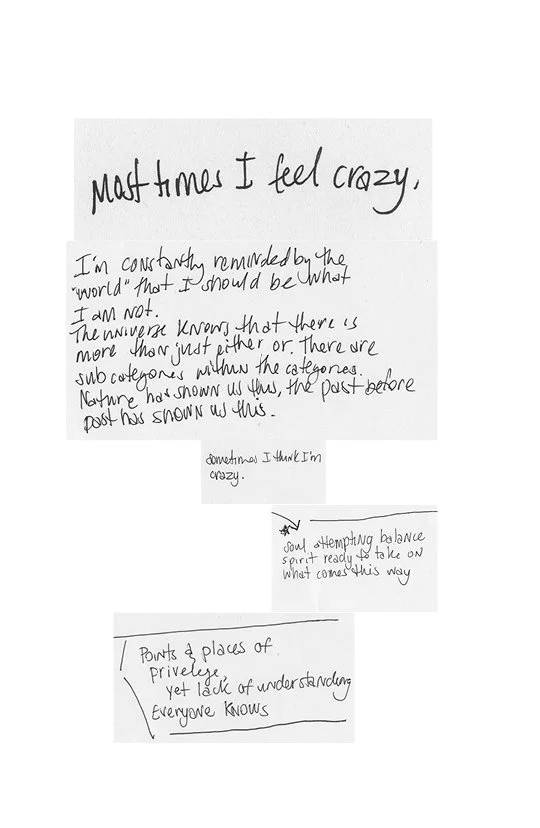 Most times I feel crazy.
I'm constantly reminded by the
"world" that I should be what
I am not.
The universe knows that there is
more than just either or. There are
sub categories within the categories.
Nature has shown us this, the past before
past has shown us this.
sometimes I think I'm
crazy.
soul attempting balance
spirit ready to take on
what comes this way
Points & places of
privelege,
yet lack of understanding
Everyone knows